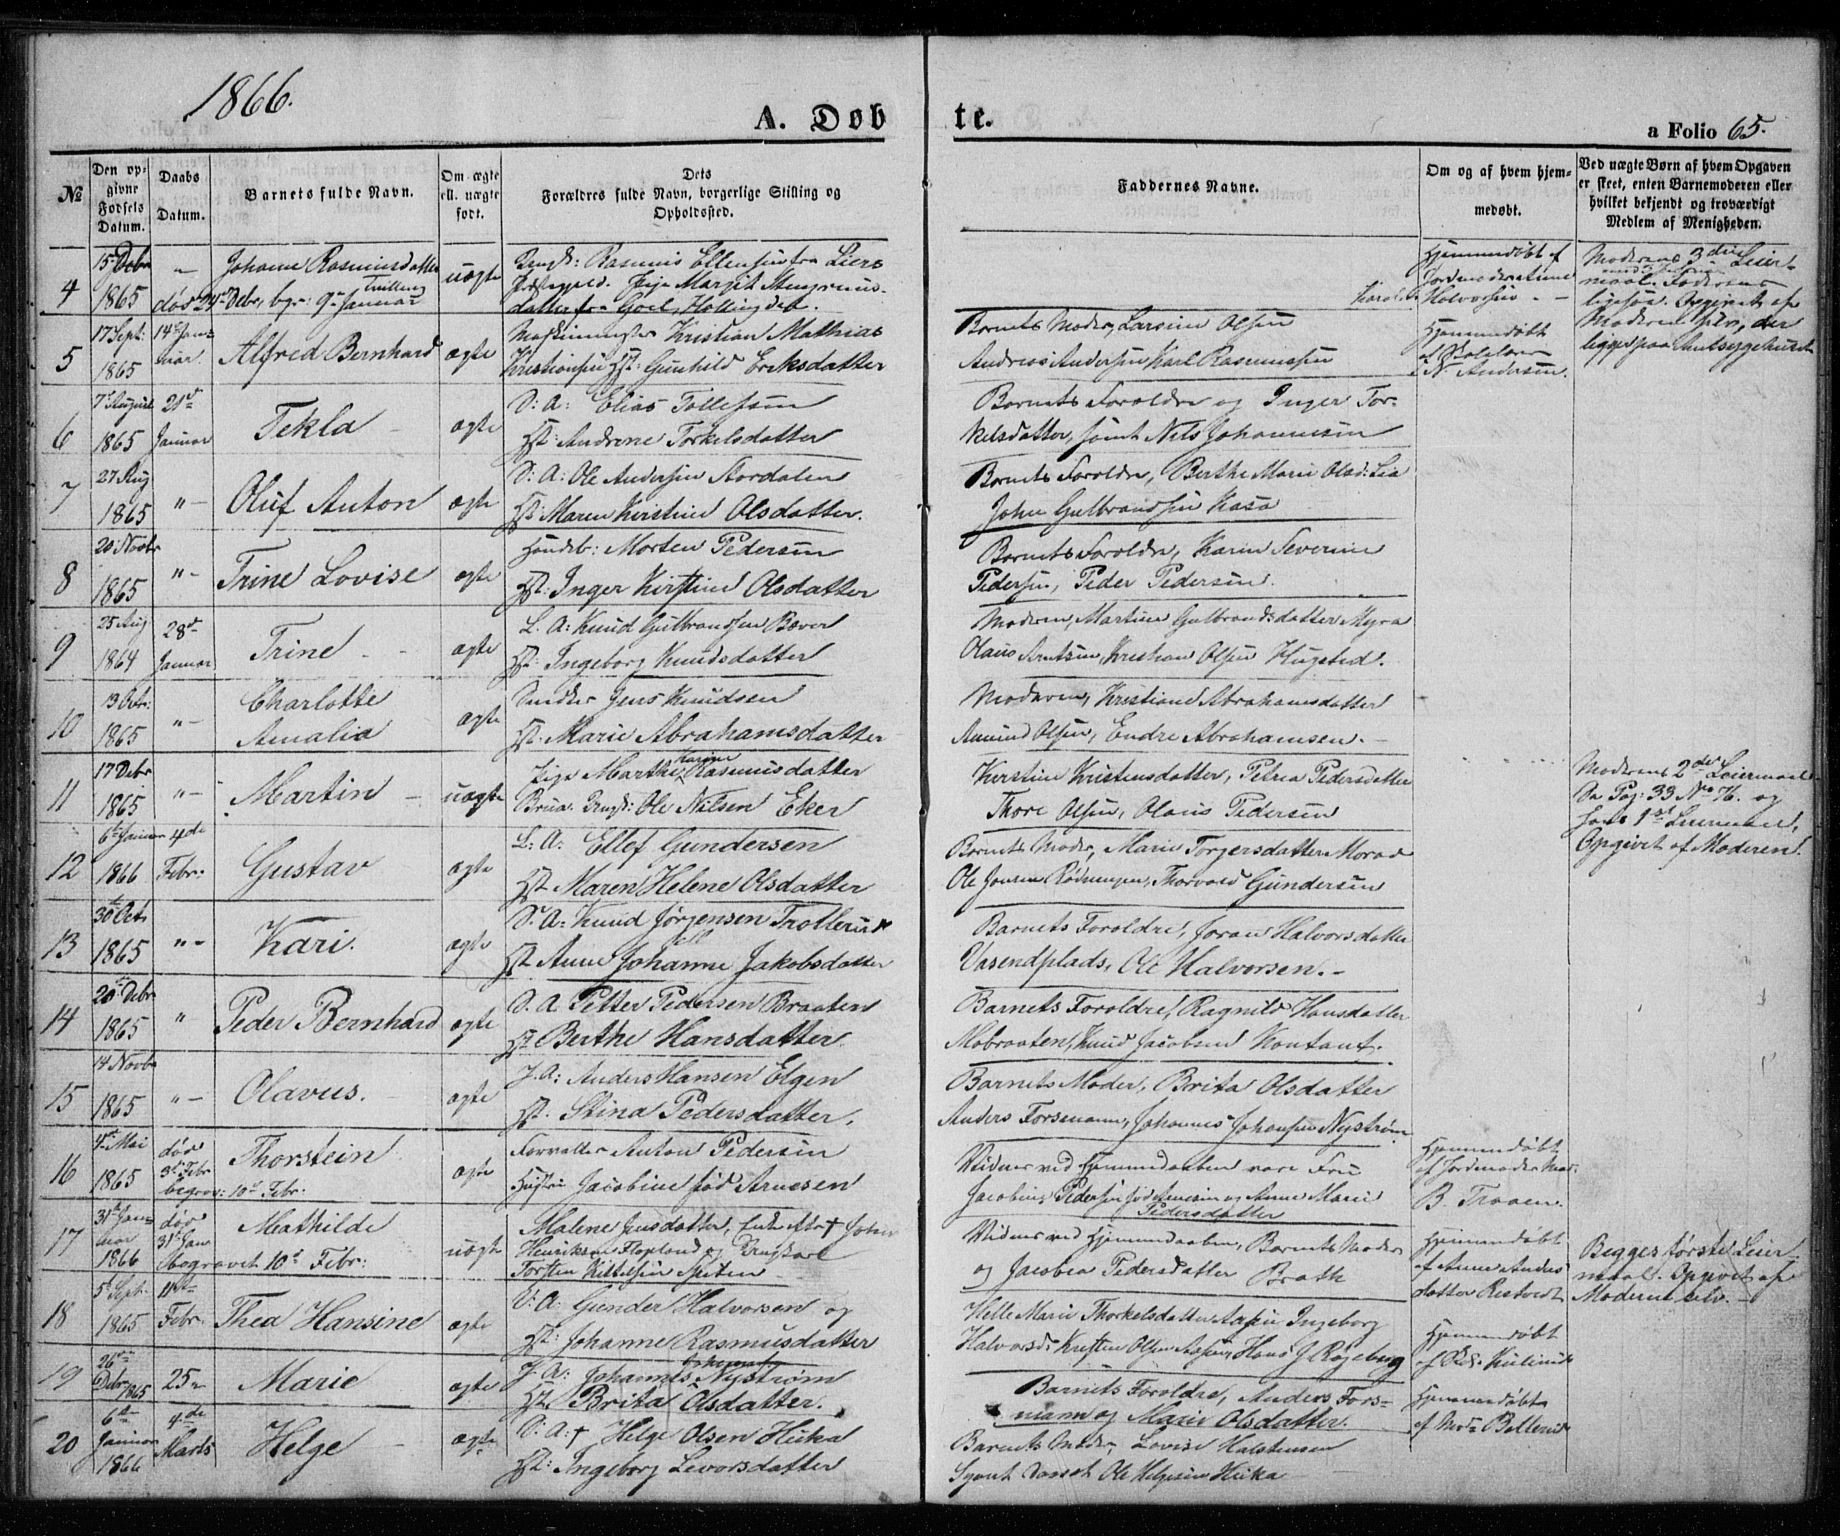 1866.
A. Døb
te.
a Folio 65.
№
Den op-
givne
Fødsels
Datum.
Daabs
Datum.
Barnets fulde Navn.
Om ægte
ell. uægte
født.
Dets
Forældres fulde Navn, borgerlige Stilling og
Opholdssted.
Faddernes Navne.
Om og af hvem hjem-
medøbt.
Ved uægte Børn af hvem Opgaven
er skeet, enten Barnemoderen eller
hvilket bekjendt og troværdigt
Medlem af Menigheden.
4
15 Debr
1865
"
død 24de Debr, bgr: 9de Januar
Johanne Rasmusdatter
Tvilling
uægte
Rasmus Ellensen fra Liers
Præstegjeld. Pige Margit
datter fra Goel, Hallingdal.
Hjemmedøbt af
Jordmoder Anne
Halvorsen
Moderens 3die Leier-
maal. Faderens
ligesaa. Opgivet af
Moderen selv, der
ligger paa Amtssygehuset
5
17 Sept:
1865
14de Jan-
uar.
Alfred Bernhard
ægte
Maskinmester Kristian Mathias
Kristiansen Hst: Gunhild Eriksdatter
Barnets Moder, Larsine Olsen
Andreas Andersen, Karl Rasmussen
Hjemmedøbt
af
N. Andersen.
6
7de August
1865
21de
Januar
Tekla
ægte
S: A: Elias Tollefsen
Hst: Andrine Torkelsdatter
Barnets Forældre og Inger Tor-
kelsdatter, samt Nils Johannesen
7
27 Aug
1865
"
Oluf Anton
ægte
S: A: Ole Andersen Aardalen
Hst: Maren Kirstine Olsdatter.
Barnets Forældre, Berthe Marie Olsd: Lia
John Gulbrandsen Kasa
8
20 Novbr
1865
"
Trine Lovise
ægte
Handelsb: Morten Pedersen
Hst: Inger Kirstine Olsdatter
Barnets Forældre, Karin Severine
Pedersen, Peder Pedersen.
9
25 Aug
1864
28de
Januar
Trine
ægte
L. A: Knud Gulbrandsen Bæver
Hst: Ingeborg Knudsdatter
Moderen, Martine Gulbrandsdatter Myra
Olaus Arntsen, Kristian Olsen Hugsted.
10
13 Octr:
1865
"
Charlotte
Amalia
ægte
Snedker Jens Knudsen
Hst. Marie Abrahamsdatter
Moderen, Kristiane Abrahamsdatter
Amund Olsen, Endre Abrahamsen.
11
17 Debr
1865
"
Martin
uægte
Pige Marthe Karine Rasmusdatter
Brua. Ungk: Ole Nilsen Eker
Kirstine Kristensdatter, Petrea Pedersdatter
Thore Olsen, Olaus Pedersen
Moderens 2det Leiermaal
Se Pag: 33 No 76. og
hans 1ste Leiermaal,
Opgivet af Moderen.
12
6te Januar
1866
4de
Febr:
Gustav
ægte
L: A: Ellef Gundersen
Hst Maren Helene Olsdatter
Barnets Moder, Marie Torgersdatter Morad
Ole Jonsen Rødningen, Thorvald Gundersen
13
30te Oct
1865
"
Kari.
ægte
S. A: Knud Jørgensen Trollerud
Hst Anne Johanne Jakobsdatter
Barnets Forældre, Joran Halvorsdatter
Vasendplads, Ole Halvorsen.
14
20de Debr
1865
"
Peder Bernhard
ægte
S. A Petter Pedersen Braaten
Hst Berthe Hansdatter
Barnets Forældre, Ragnild Hansdatter
Mobraaten, Knud Jacobsen Kontant.
15
14 Novbr
1865
"
Olavus.
ægte
J. A: Anders Hansen Elgen
Hst. Stina Pedersdatter.
Barnets Moder, Brita Olsdatter
Anders Forsmann, Johannes Johansen Nystrøm
16
4de Mai
1865
død
3de Febr
begrav: 10de Febr.
Thorstein
ægte
Forvalter Anton Pedersen
Hustru Jacobine fød Arnesen
Vidner ved Hjemmedaaben vare Fru
Jacobine Pedersen fød Arnesen og Anne Marie
Pedersdatter
Hjemmedøbt
af Jordmoder Mad:
B. Troen.
17
31te Jan-
uar
1866
død
31te Jan
begravet 10de Febr:
Mathilde
uægte
Malene Jensdatter, Enke efter John
Henriksen Flopland og Ungkarl
Torsten Kittelsen Speten
Vidner ved Hjemmedaaben, Barnets Moder
og Jacobea Pedersdatter Brath
Hjemmedøbt
af Anne Anders-
datter Restvedt
Begges første Leier-
maal. Opgivet af
Moderen selv.
18
5te Sept.
1865
11te
Febr.
Thea Hansine
ægte
S: A: Gunder Halvorsen og
Hst: Johanne Rasmusdatter
Helle Marie Thorkelsdatter Aasen Ingeborg
Halvorsd: Kristen Olsen Aasen, Hans J Røgeberg
Hjemmedøbt
af
19
26de
Debr 1865
25de
Marie
ægte
J. A: Johannes Johansen Nystrøm
Hst Brita Olsdatter.
Barnets Forældre, Anders Fors-
mann og Marie Olsdatter.
Hjemmedøbt
af Mad: Bellerud
20
6te
Januar
1866
4de
Marts
Helge
ægte
S. A: † Helge Olsen Huka
Hst: Ingeborg Levorsdatter
Barnets Moder, Lovise Halstensen
Ole Helgesen Huka